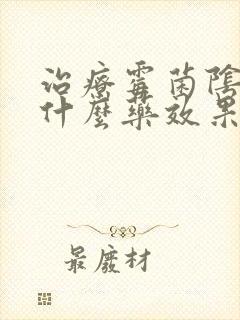 治療霉菌陰
什麼藥效果
最廢材